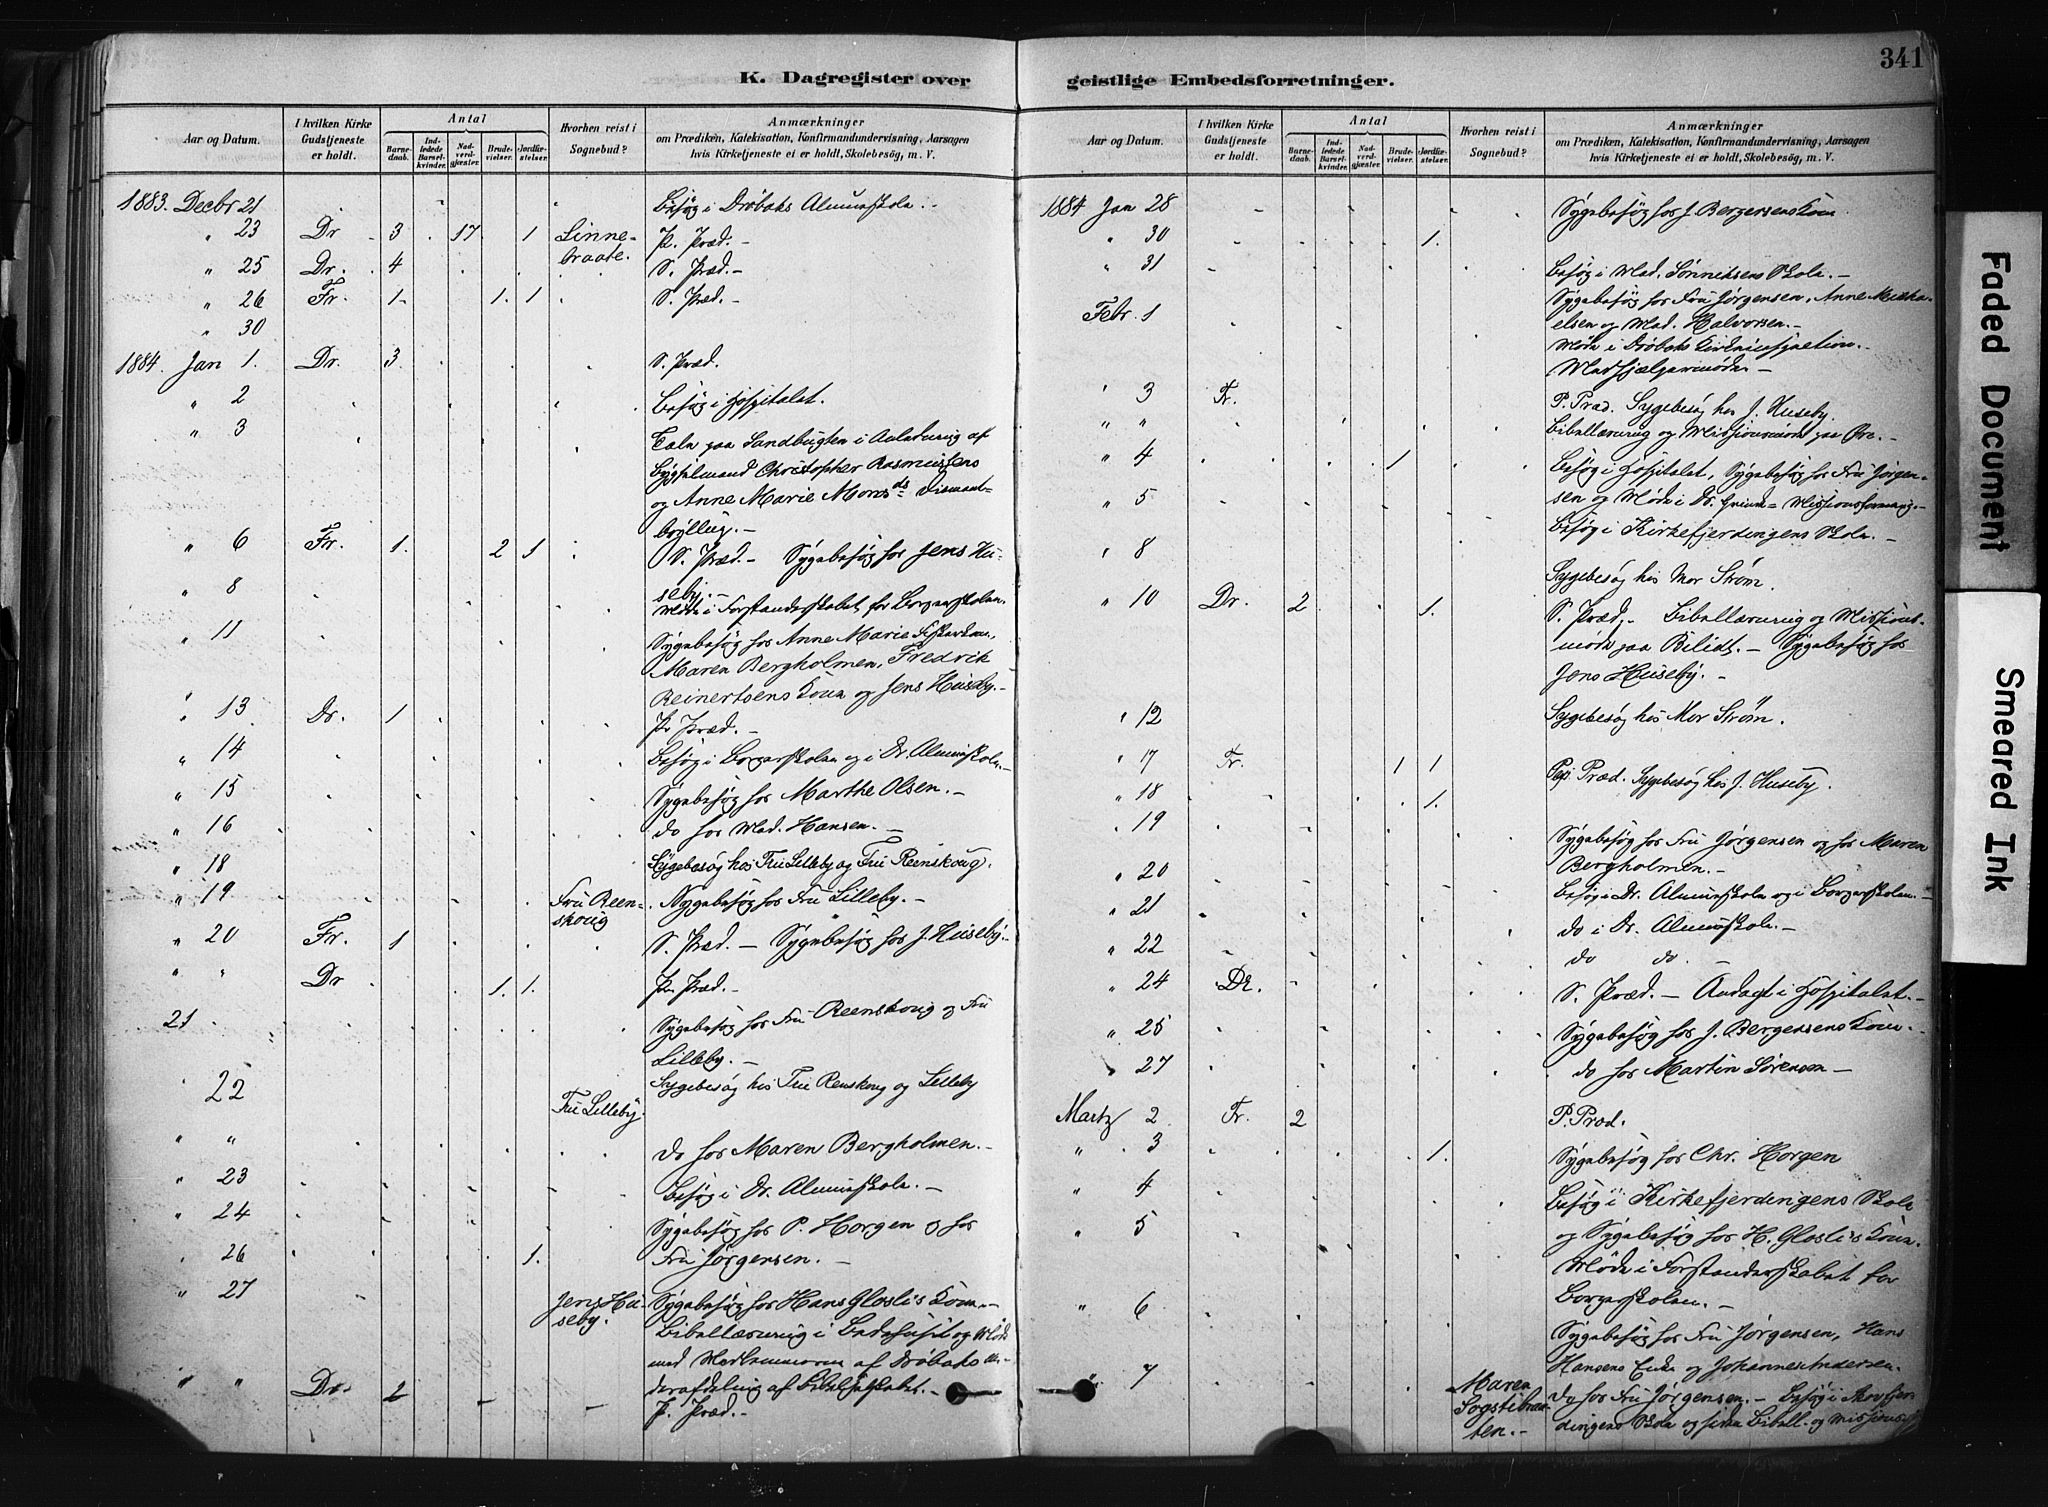 341
K. Dagregister over
geistlige Embedsforretninger.
Aar og Datum.
I hvilken Kirke Gudstjeneste er holdt.
Antal
Barnedaab.
Indledede Barselkvinder.
Nadverdgjæster.
Brudevielser.
Jordfæstelser.
Hvorhen reist i Sognebud?
Anmærkninger
om Prædiken, Katekisation, Konfirmandundervisning, Aarsagen
hvis Kirketjeneste ei er holdt, Skolebesøg, m. V.
1883. Decbr 21 Besøg i Drøbaks Almueskole.
" 23 Dr 3 17 1 Linne- P. Præd.
braate.
" 25 Dr. 4 S. Præd.
" 26 Fr. 1. 1. 1 S. Præd.
" 30
1884. Jan 1. Dr. 3 S. Præd.
" 2 Besøg i Hospitalet.
" 3 Tale paa Sandbugten i Anledning af
Christopher Rasmussens
og Anne Marie Monsds Diamant-
bryllup.
" 6 Fr. 1. 2 1 S. Præd. – Sygebesøg hos Jens Hu-
seby.
" 8 Møde i Forstanderskabet for Borgerskolen.
" 11 Sygebesøg hos Anne Marie
Maren Bergholmen, Fredrik
Reinertsens Kone og Jens Huseby.
" 13 Dr. 1 Pr Præd.
" 14 Besøg i Borgerskolen og i Dr. Almueskole.
" 15 Sygebesøg hos Marthe Olsen.
" 16 do hos Mad. Hansen.
" 18 Sygebesøg hos Fru Lilleby og Fru Reenskoug.
" 19 Fru Reen- Sygebesøg hos Fru Lilleby.
skoug
" 20 Fr. 1 S. Præd. – Sygebesøg hos J. Huseby.
" " Dr 1. 1. Pr. Præd.
21 Sygebesøg hos Fru Reenskoug og Fru
Lilleby.
22 Fru Lilleby. Sygebesøg hos Fru Renskoug og Lilleby
" " do hos Maren Bergholmen.
" 23 Besøg i Dr. Almueskole.
" 24 Sygebesøg hos P. Horgen og hos
" 26 1. Fru Jørgensen.
" 27 Jens Hu- Sygebesøg hos Hans Gloslis Kone.
seby. Bibellæsning i Bedehuset og Møde
med Medlemmerne af Drøbaks Un-
" " Dr. derafdeling af Bibelselskabet.
P. Præd.
Aar og Datum.
I hvilken Kirke Gudstjeneste er holdt.
Antal
Barnedaab.
Indledede Barselkvinder.
Nadverdgjæster.
Brudevielser.
Jordfæstelser.
Hvorhen reist i Sognebud?
Anmærkninger
om Prædiken, Katekisation, Konfirmandundervisning, Aarsagen
hvis Kirketjeneste ei er holdt, Skolebesøg, m. V.
1884 Jan 28 Sygebesøg hos J. Bergersens Kone.
" 30 1.
" 31 Besøg i Mad. Sønniksens Skole.
Febr. 1 Sygebesøg hos Fru Jørgensen, Anne Micha-
elsen og Mad. Halvorsen.
Møde i Drøbaks
Medhjælpermøde
" 3 Fr. P. Præd. Sygebesøg hos J. Huseby.
" " Bibellæsning og Missionsmøde paa
" 4 1 Besøg i Hospitalet, Sygebesøg hos Fru Jørgen-
" 5 sen og Møde i Dr. Missionsforening.
Besøg i Kirkefjerdingens Skole.
" 8 Sygebesøg hos Mor Strøm.
" 10 Dr. 2 1. S. Præd. Bibellæsning og Missions-
møde paa Bilidt. – Sygebesøg hos
Jens Huseby.
" 12 Sygebesøg hos Mor Strøm.
" 17 Fr. 1 1 Præd. Sygebesøg hos J. Huseby.
" 18 1.
" 19 Sygebesøg hos Fru Jørgensen og hos Maren
Bergholmen.
" 20 Besøg i Dr. Almueskole og i Borgerskolen.
" 21 do i Dr. Almueskole.
" 22 do do.
" 24 Dr. S. Præd. – Andagt i Hospitalet.
" 25 Sygebesøg hos J. Bergersens Kone.
" 27 do hos Martin Sørensen
Martz 2 Fr. 2 P. Præd.
" 3 1. Sygebesøg hos Chr. Horgen
" 4 Besøg i Kirkefjerdingens Skole
" 5 og Sygebesøg hos H. Gloslis Kone.
Møde i Forstanderskabet for
Borgerskolen.
" 6 Sygebesøg hos Fru Jørgensen, Hans
Hansens Enke og Johannes Andersen.
" 7 Maren do hos Fru Jørgensen. – Besøg i
Sogstibraa- dingens Skole og siden Bibell. og
ten.
Faded Document
Smeared Ink